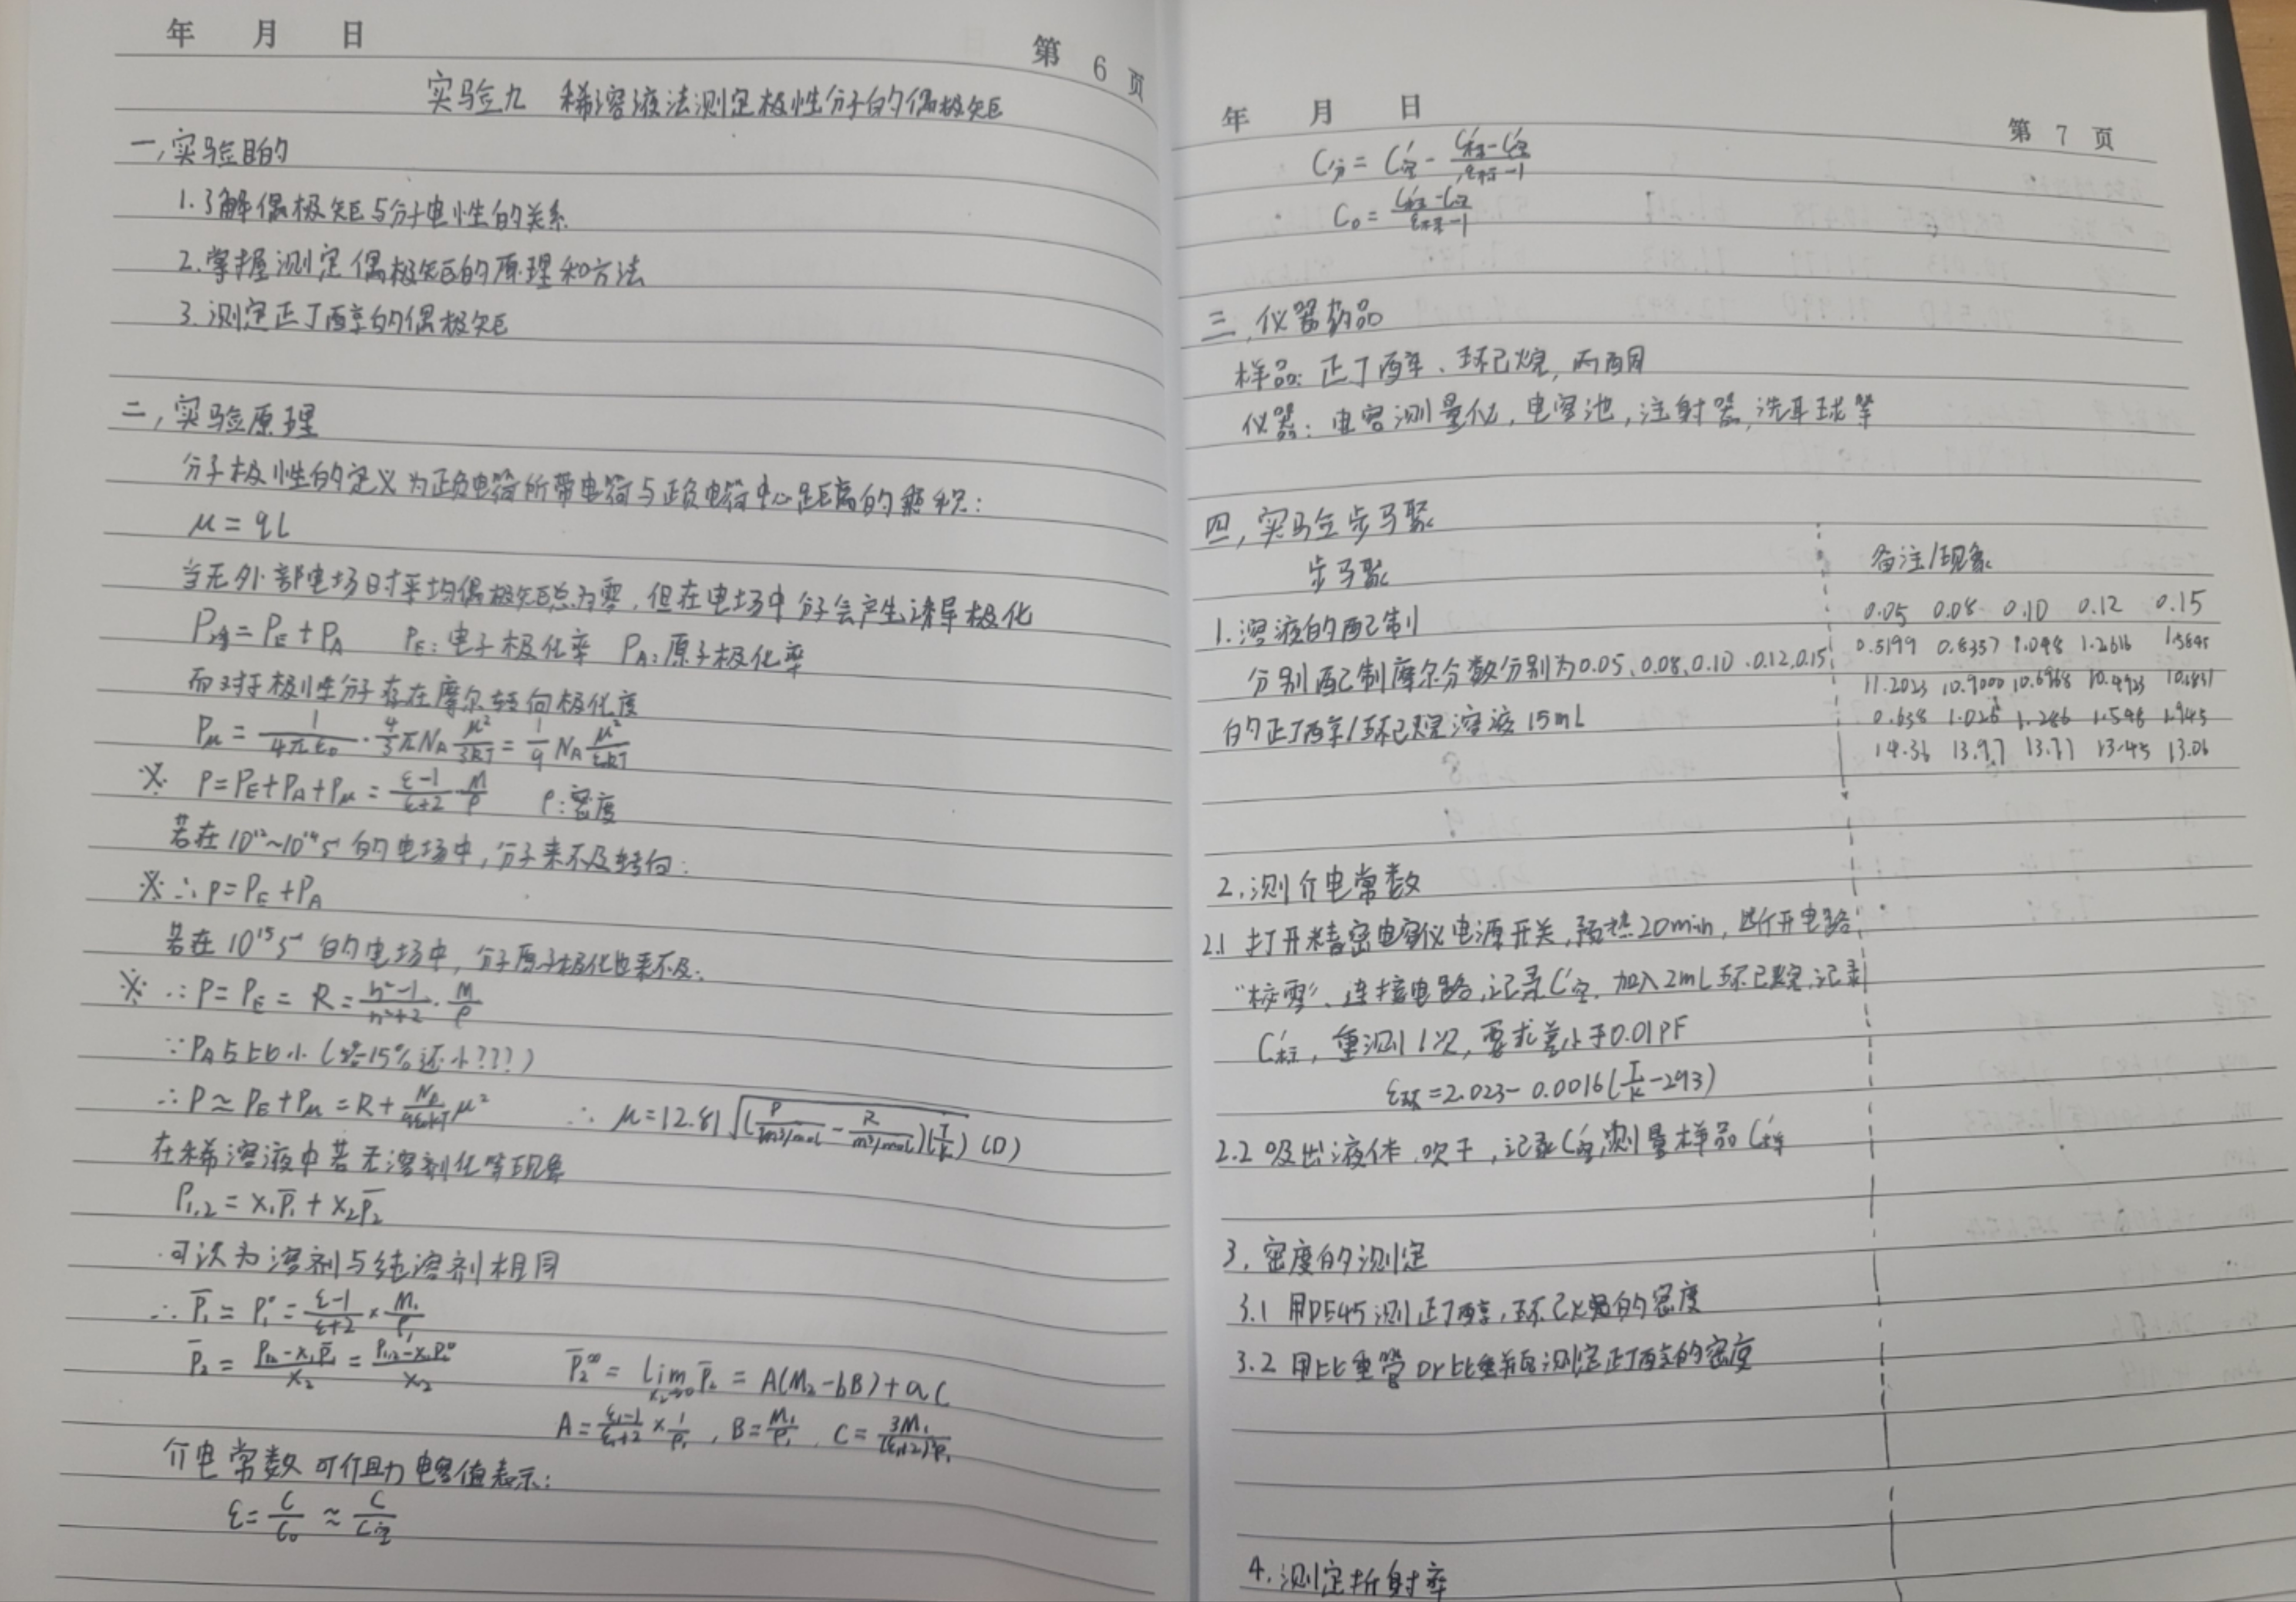 年 月 日
第 6 页
实验九 稀溶液法测定极性分子的偶极矩
一,实验目的
1.了解偶极矩与分子电性的关系
2.掌握测定偶极矩的原理和方法
3.测定正丁醇的偶极矩
二,实验原理
分子极性的定义为正负电荷所带电荷与正负电荷中心距离的乘积:
μ = qL
当无外部电场时平均偶极矩总为零,但在电场中分子会产生诱导极化
P诱 = PE + PA PE:电子极化率 PA:原子极化率
而对于极性分子存在摩尔转向极化度
Pμ = 1/4πε0 · 4/3 πNA μ²/3kT = 1/9 NA μ²/εkT
※ P=PE+PA+Pμ = ε-1/ε+2 · M/ρ ρ:密度
若在10¹²~10¹⁴s⁻¹的电场中,分子来不及转向:
※ ∴ P=PE+PA
若在10¹⁵s⁻¹的电场中,分子原子极化也来不及:
※ ∴ P=PE = R = n²-1/n²+2 · M/ρ
∵PA占比小(15%还小???)
∴ P ≃ PE+Pμ = R+ μ² ∴ μ=12.81√(P/m³/mol - R/m³/mol)(T/K) (D)
在稀溶液中若无溶剂化等现象
P1,2 = x1P̄1 + x2P̄2
可认为溶剂与纯溶剂相同
∴ P̄1 = P1° = ε-1/ε+2 × M1/ρ1
P̄2 = P12-x1P̄1/x2 = P1,2-x1P1°/x2 P̄2∞ = lim x2→0 P̄2 = A(M2-bB)+aC
A = ε1-1/ε1+2 × 1/ρ1 , B = M1/ρ1 , C = 3M1/(ε1+2)²ρ1
介电常数可借助电容值表示:
ε = C/C0 ≈ C/C空
年 月 日
第 7 页
C分 = C'空 - C'标-C'空/ε标-1
C0 = C'标-C'空/ε标-1
三,仪器药品
样品: 正丁醇、环己烷,丙酮
仪器: 电容测量仪,电容池,注射器,洗耳球等
四,实验步骤
步骤 备注/现象
1.溶液的配制 0.05 0.08 0.10 0.12 0.15
分别配制摩尔分数分别为0.05、0.08、0.10、0.12、0.15 0.5199 0.8357 1.048 1.2616
的正丁醇/环己烷溶液15mL 11.2023 10.9000 10.6968 10.4923
0.638 1.026 1.286 1.548 1.945
14.36 13.97 13.71 13.45 13.06
2.测介电常数
2.1 打开精密电容仪电源开关,预热20min,断开电路
"标零"、连接电路,记录C'空. 加入2mL环己烷,记录
C'标,重测1次,要求差小于0.01PF
ε环=2.023-0.0016(T/K-293)
2.2 吸出液体,吹干,记录C'空,测量样品C'样
3,密度的测定
3.1 用DE45测正丁醇,环己烷的密度
3.2 用比重管or比重瓶测定正丁醇的密度
4.测定折射率